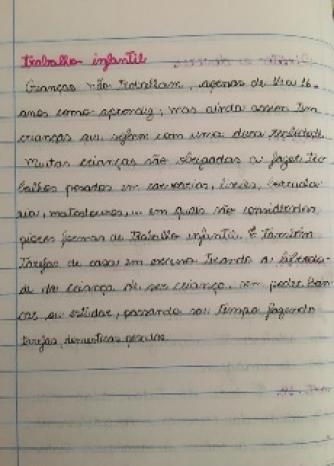 Trabalho infantil
Crianças não trabalham, apenas de 14 a 16
anos como aprendiz, mas ainda assim tem
crianças que sofrem com uma dura realidade.
Muitas crianças são obrigadas a fazer tra
balhos pesados em carvoarias,
matadouros... em quais são consideradas
piores formas de trabalho infantil. E também
tarefas de casa em excesso tirando a liberda-
de da criança de ser criança, sem poder brin
car ou estudar, passando seu tempo fazendo
tarefas domesticas pesadas.